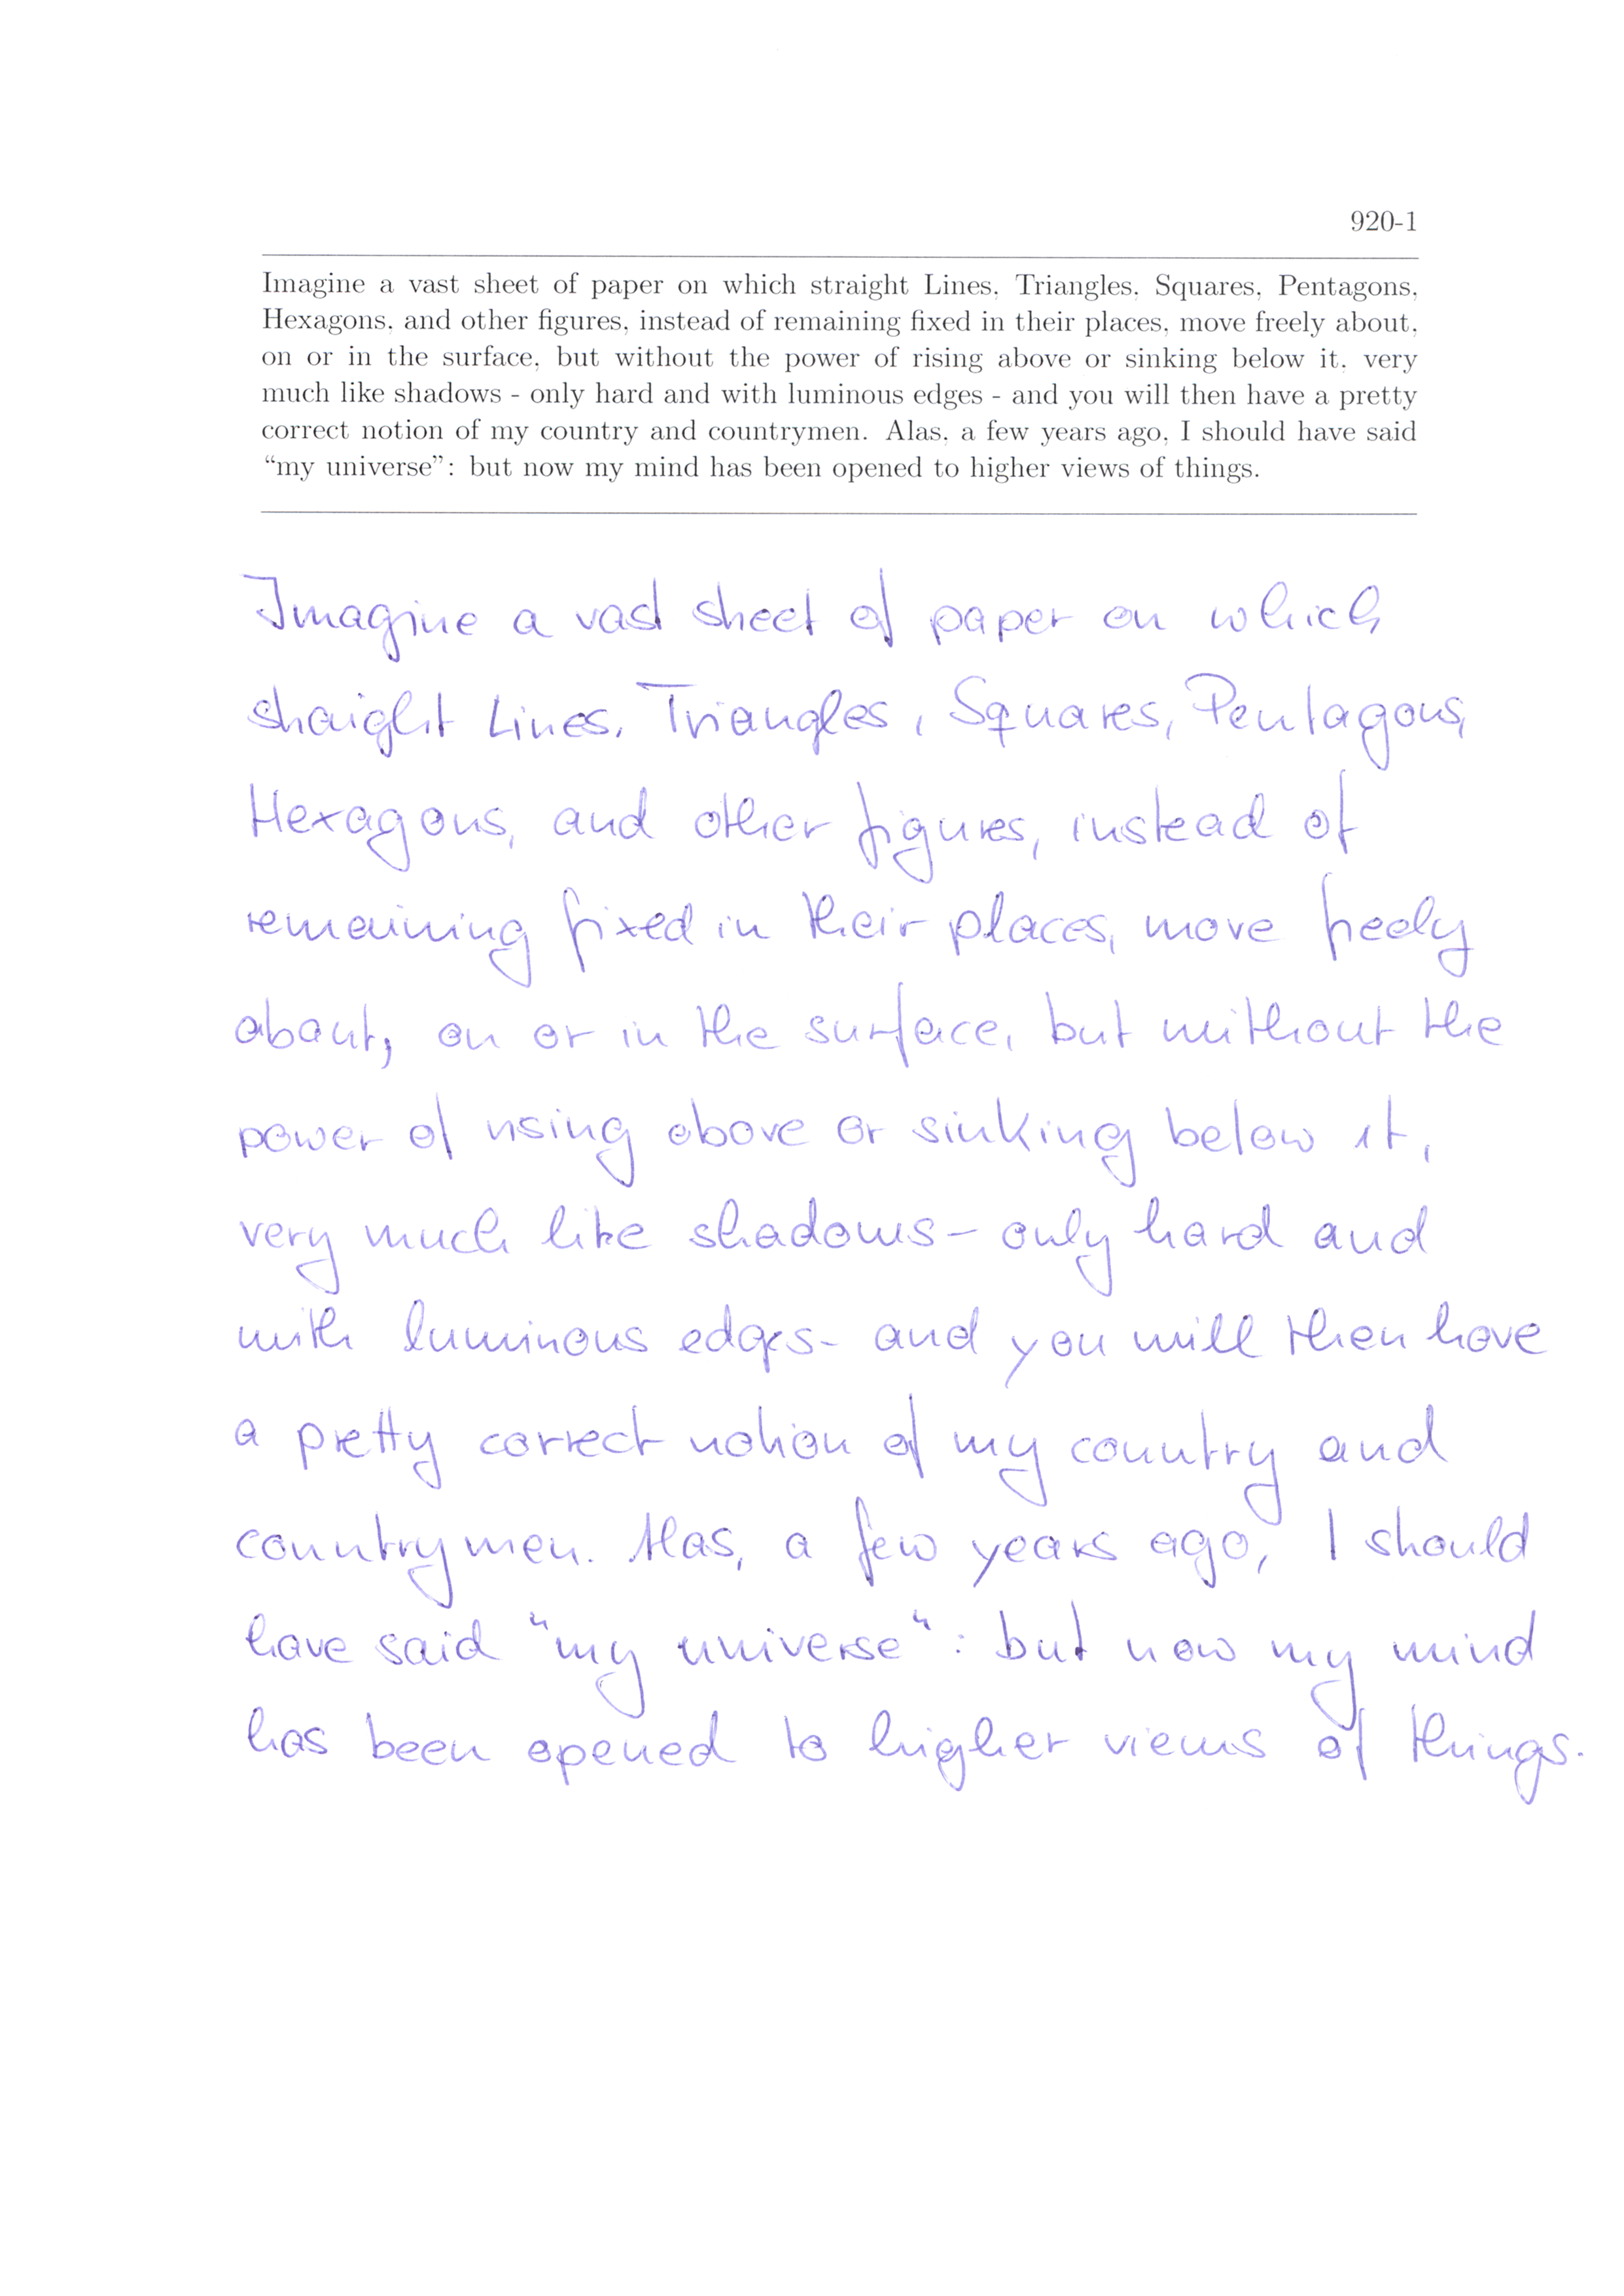 920-1
Imagine a vast sheet of paper on which straight Lines, Triangles, Squares, Pentagons,
Hexagons, and other figures, instead of remaining fixed in their places, move freely about,
on or in the surface, but without the power of rising above or sinking below it, very
much like shadows - only hard and with luminous edges - and you will then have a pretty
correct notion of my country and countrymen. Alas, a few years ago, I should have said
“my universe”: but now my mind has been opened to higher views of things.
Imagine a vast sheet of paper on which
straight Lines, Triangles, Squares, Pentagons,
Hexagons, and other figures, instead of
remaining fixed in their places, move freely
about, on or in the surface, but without the
power of rising above or sinking below it,
very much like shadows - only hard and
with luminous edges - and you will then have
a pretty correct notion of my country and
countrymen. Alas, a few years ago, I should
have said "my universe": but now my mind
has been opened to higher views of things.